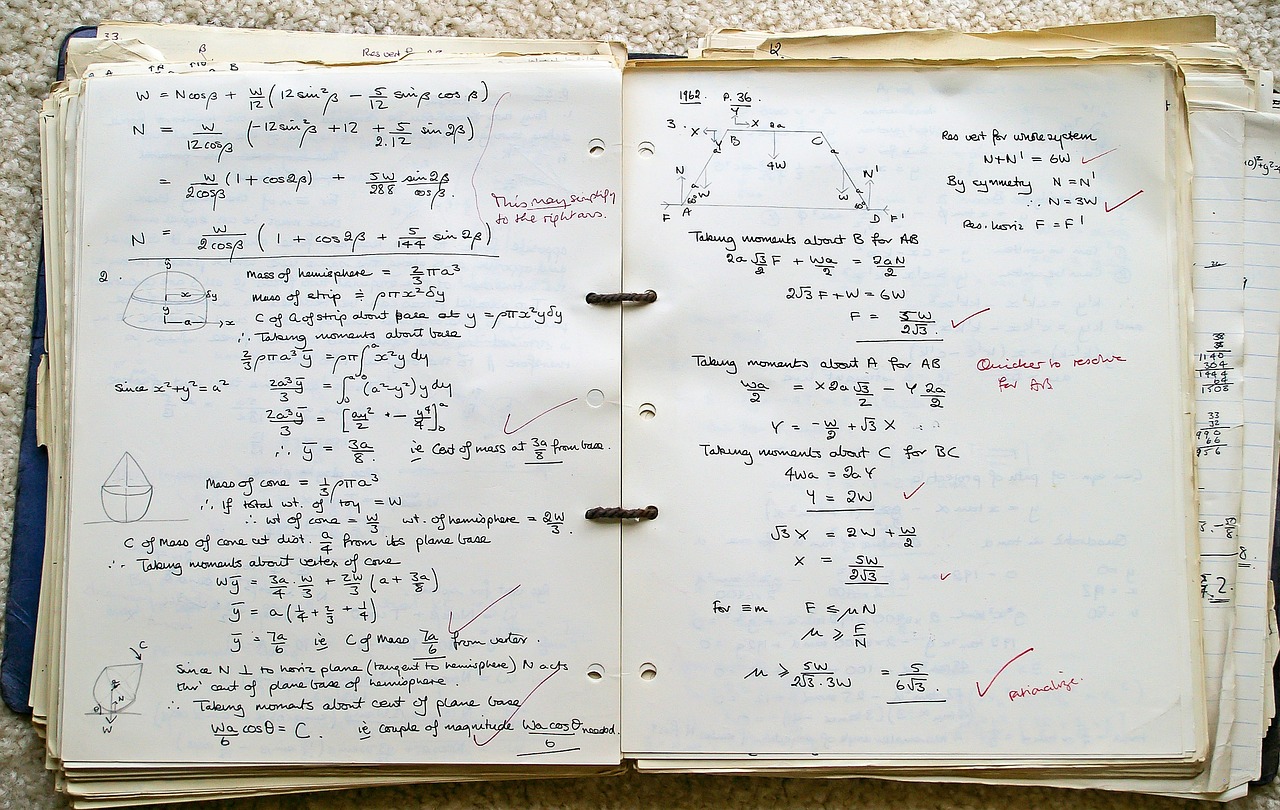 33.
β
Res vert
B
W = Ncosβ + W/12 (12 sin²β − 5/12 sinβ cosβ)
N = W/12cosβ (−12sin²β + 12 + 5/2.12 sin 2β)
= W/2cosβ (1 + cos2β) + 5W/288 sin2β/cosβ.
This may simplify
to the right ans.
N = W/2cosβ (1 + cos2β + 5/144 sin 2β)
2.
y
x δy
y
a x
Mass of hemisphere = 2/3 πa³
Mass of strip ≑ ρπx²δy
C of G of strip about base at y = ρπx²yδy
∴ Taking moments about base
2/3 ρπa³ȳ = ρπ∫₀ᵃ x²y dy
Since x²+y² = a² 2a³ȳ/3 = ∫₀ᵃ (a²−y²) y dy
2a³ȳ/3 = [ay²/2 − y⁴/4]₀ᵃ
∴ ȳ = 3a/8 ie Cent of mass at 3a/8 from base.
Mass of cone = 1/3 ρπa³
∴ If total wt. of toy = W
∴ wt of cone = W/3 wt. of hemisphere = 2W/3.
C of Mass of cone at dist. a/4 from its plane base
∴ Taking moments about vertex of cone
Wȳ = 3a/4 . W/3 + 2W/3 (a + 3a/8)
ȳ = a(1/4 + 2/3 + 1/4)
ȳ = 7a/6 ie C of Mass 7a/6 from vertex.
C
N
θ
W
Since N ⊥ to horiz plane (tangent to hemisphere) N acts
thro' cent of plane base of hemisphere.
∴ Taking moments about cent of plane base
Wa/6 cosθ = C. ie couple of magnitude Wa cosθ/6 needed.
62.
1962. P. 36.
3.
Y
X X 2a
Y B C
a a
4W
N N'
a a
W W
60° 60°
F A D F'
Res vert for whole system
N+N' = 6W
By symmetry N = N'
∴ N = 3W
Res. horiz F = F'
Taking moments about B for AB
2a √3/2 F + Wa/2 = 2aN/2
2√3 F + W = 6W
F = 5W/2√3.
Taking moments about A for AB
Quicker to resolve
for AB
Wa/2 = X 2a √3/2 − Y 2a/2
Y = −W/2 + √3 X
Taking moments about C for BC
4Wa = 2aY
Y = 2W
√3 X = 2W + W/2
X = 5W/2√3
For ≡m F ≤ μN
μ ≥ F/N
μ ≥ 5W/2√3.3W = 5/6√3.
rationalize.
38
38
1140
304
1444
64
1508
33
32
990
66
956